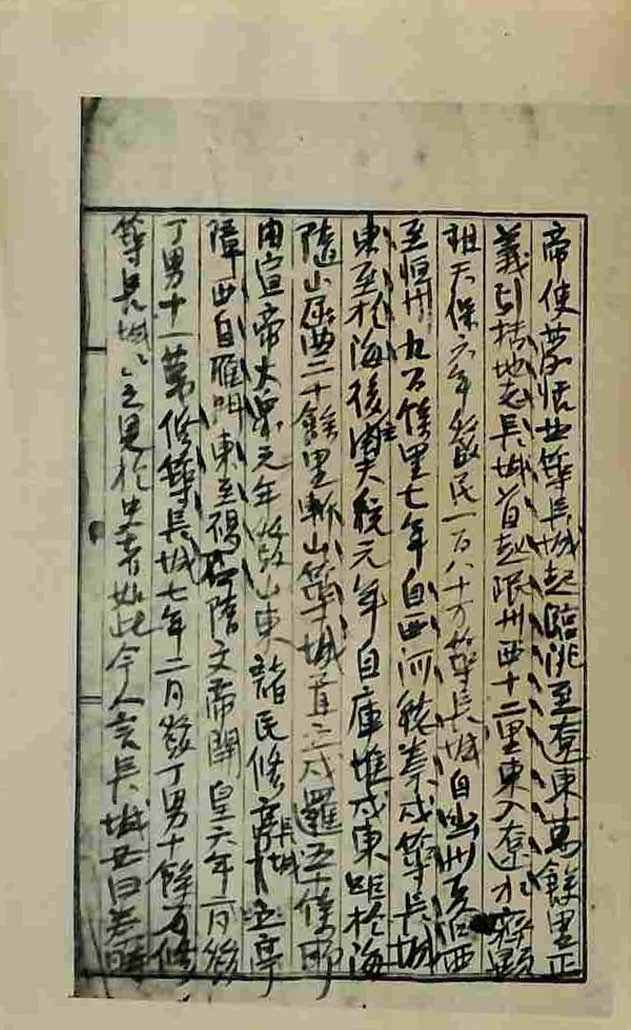 帝使蒙恬世築長城起臨洮至遼東萬餘里正
義引括地志長城首起岷州西十二里東入遼水齊顯
祖天保六年發民一百八十万築長城自幽州至西
至恒州九百餘里七年自西河總秦戍築長城
東至於海後周大統元年自庫堆戍東距於海
隨山屈曲二十餘里斬山築城置立戍邏五十餘所
周宣帝大象元年發山東諸民修長城立亭
障西自雁門東至碣石隋文帝開皇六年二月發
丁男十一萬修築長城七年二月發丁男十餘万修
築長城之見於史者如此今人言長城世曰秦時